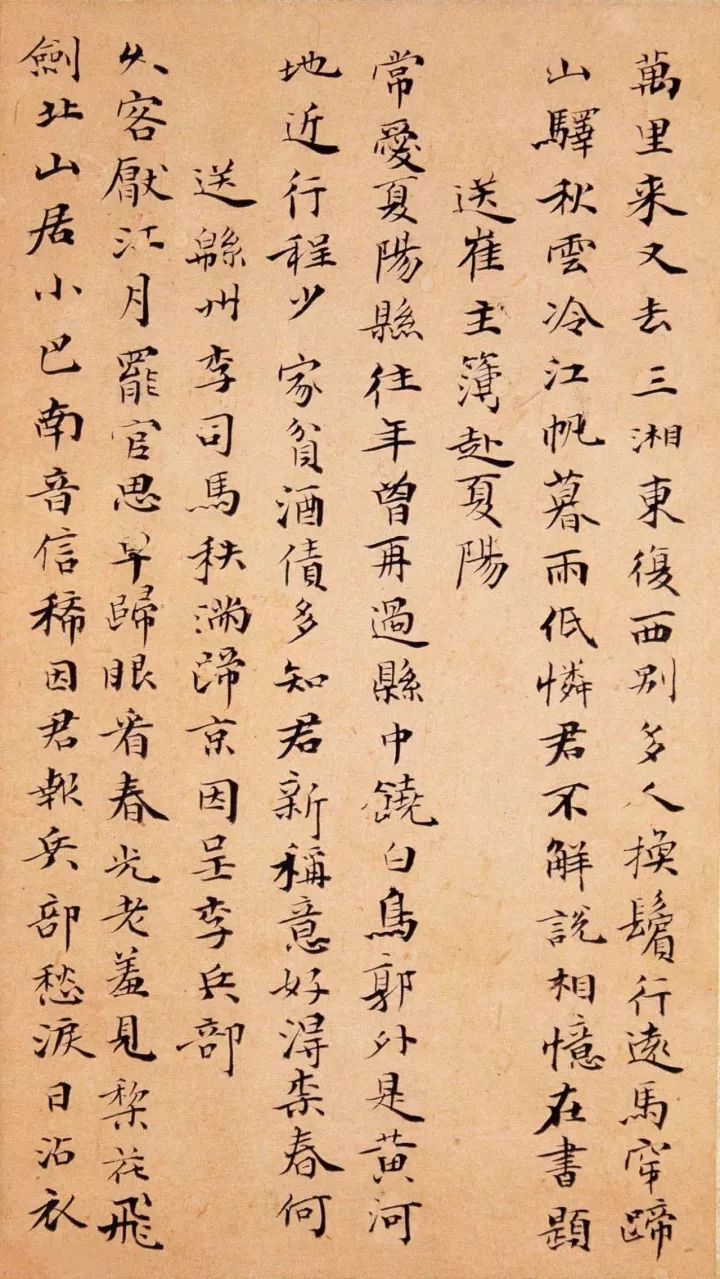 萬里来又去三湘東復西别多人換鬢行遠馬穿蹄
山驛秋雲冷江帆暮雨低憐君不解説相憶在書題
送崔主簿赴夏陽
常愛夏陽縣往年曾再過縣中饒白鳥郭外是黄河
地近行程少家貧酒債多知君新稱意好淂柰春何
送緜州李司馬秩滿歸京因呈李兵部
久客厭江月罷官思早歸眼看春光老羞見棃花飛
劍北山居小巴南音信稀因君報兵部愁淚日沾衣